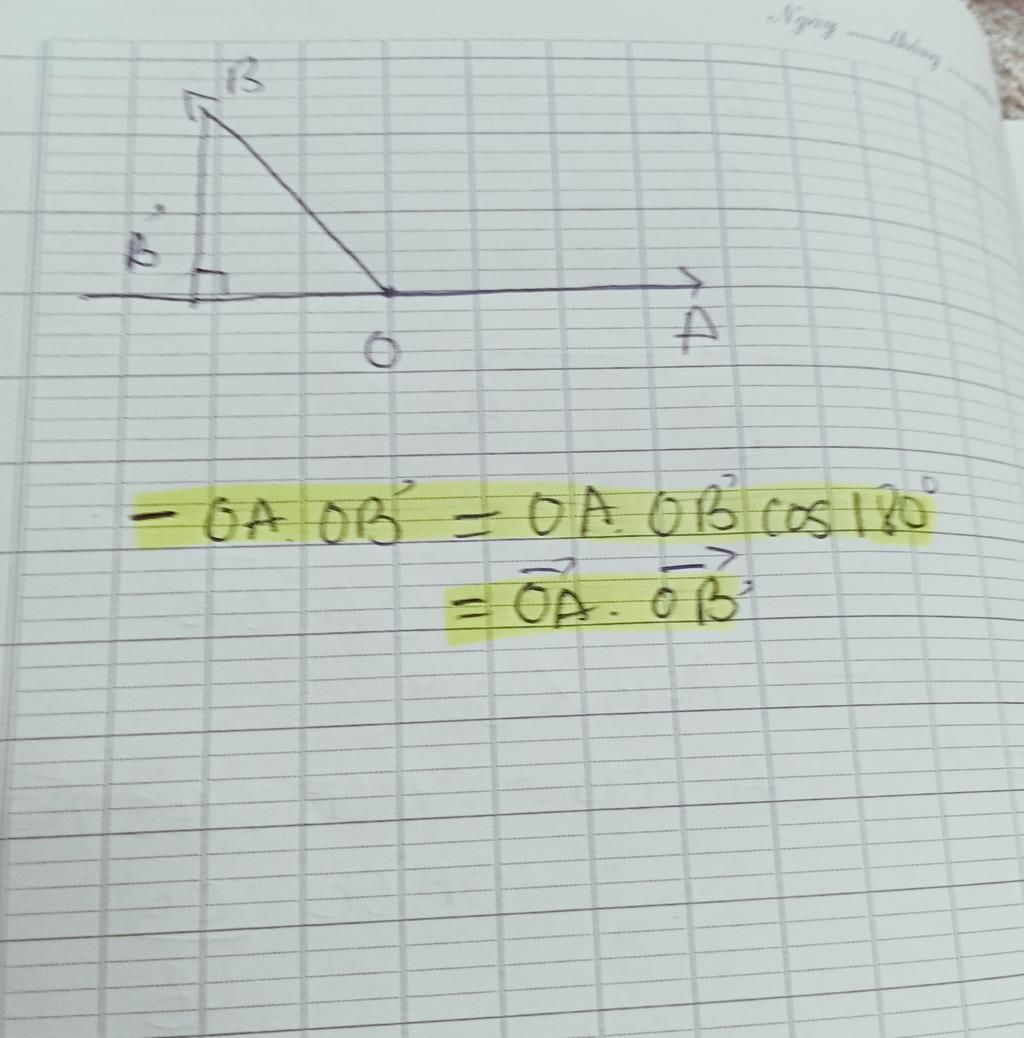 Ngày Tháng
B
B'
O A
- OA. OB' = OA. OB' cos 180°
= \overrightarrow{OA} . \overrightarrow{OB'}